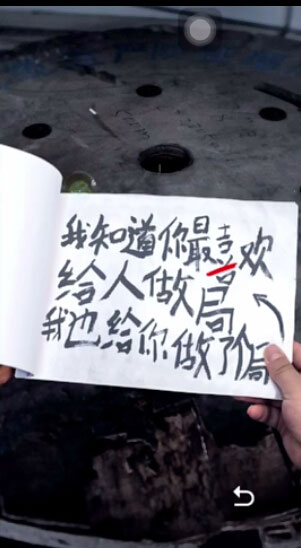 我知道你最喜欢
给人做局
我也给你做了个局